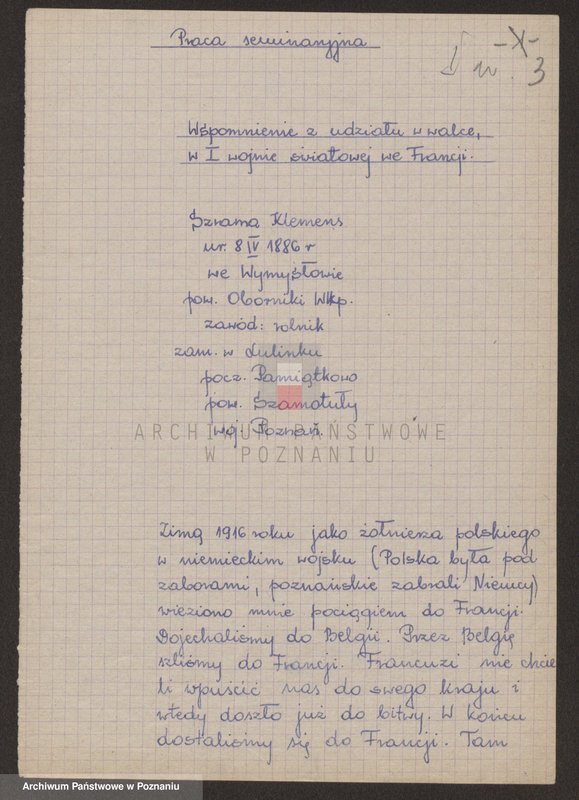 Praca seminaryjna
-X-
nr. 3
Wspomnienie z udziału w walce,
w I wojnie światowej we Francji.
Szrama Klemens
ur. 8 IV 1886 r
we Wymysłowie
pow. Oborniki Wlkp.
zawód: rolnik
zam. w Lulinku
pocz. Pamiątkowo
pow. Szamotuły
woj. Poznań.
ARCHIWUM PAŃSTWOWE
W POZNANIU
Zimą 1916 roku jako żołnierza polskiego
w niemieckim wojsku (Polska była pod
zaborami, poznańskie zabrali Niemcy)
wieziono mnie pociągiem do Francji.
Dojechaliśmy do Belgii. Przez Belgię
szliśmy do Francji. Francuzi nie chcie
li wpuścić nas do swego kraju i
wtedy doszło już do bitwy. W końcu
dostaliśmy się do Francji. Tam
Archiwum Państwowe w Poznaniu